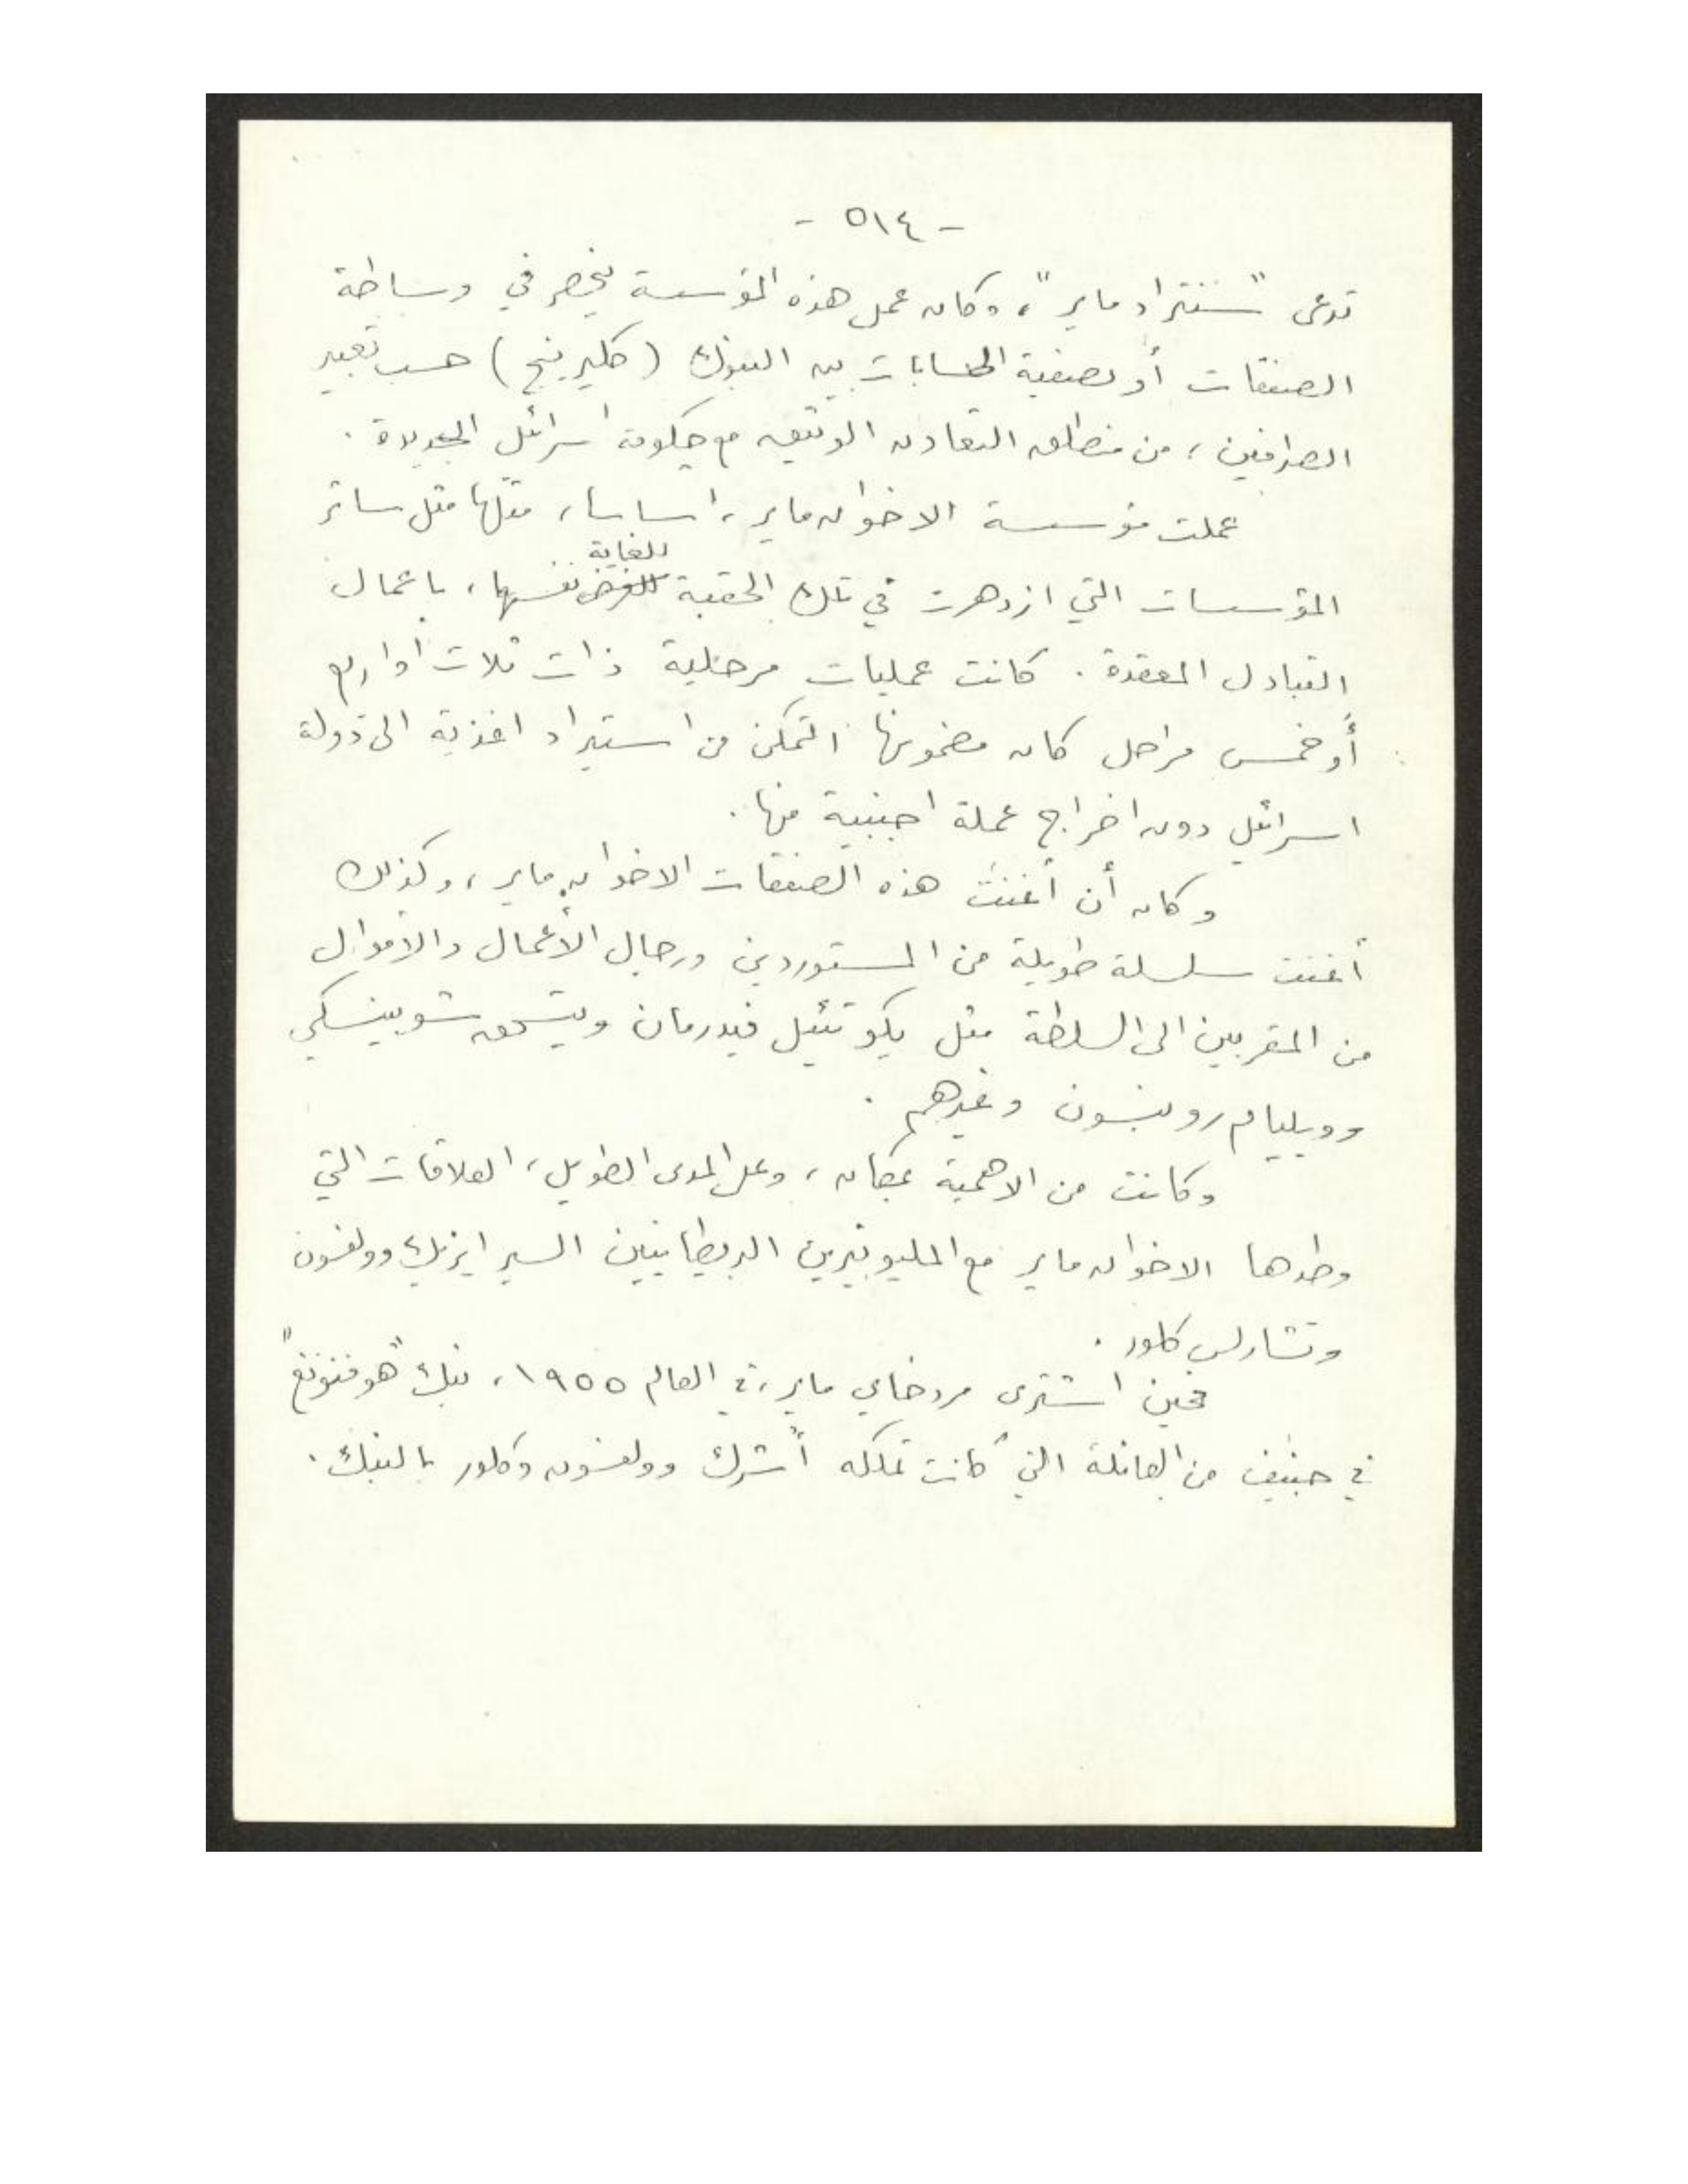 - ٥١٤ -
تدعى "سنتراد ماير"، وكان عمل هذه المؤسسة ينحصر في وساطة
الصفقات أو تصفية الحسابات بين البنوك (كليرينج) حسب تعبير
الصرافين، من منطلق التعاون الوثيق مع حكومة اسرائيل الجديدة.
عملت مؤسسة الاخوان ماير، اساسا، مثلها مثل سائر
المؤسسات التي ازدهرت في تلك الحقبة للغاية نفسها، باعمال
التبادل المعقدة. كانت عمليات مرحلية ذات ثلاث او اربع
أو خمس مراحل كان مضمونها التمكن من استيراد اغذية الى دولة
اسرائيل دون اخراج عملة اجنبية منها.
وكان أن أغنت هذه الصفقات الاخوان ماير، وكذلك
أغنت سلسلة طويلة من المستوردين ورجال الأعمال والأموال
من المقربين الى السلطة مثل يكوتئيل فيدرمان ويتسحق شوبينسكي
وويليام روبنسون وغيرهم.
وكانت من الاهمية بمكان، وعلى المدى الطويل، العلاقات التي
وطدها الاخوان ماير مع المليونيرين البريطانيين السير ايزيك وولفسون
وتشارلس كلور.
فحين اشترى مردخاي ماير، في العام ١٩٥٥، بنك "هوفنونغ"
في جنيف من العائلة التي كانت تملكه أشرك وولفسون وكلور بالبنك.